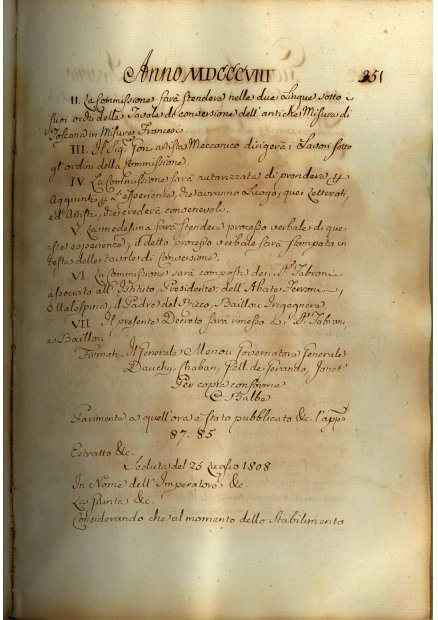 Anno MDCCCVIII 251
II. La Commissione farà stendere nelle due Lingue sotto i
suoi ordini delle Tavole di conversione dell'antiche Misure di
Toscana in Misure Francesi.
III. Il Sig. artista Meccanico dirigerà i Lavori sotto
gl'ordini della Commissione.
IV. La Commissione sarà autorizzata di prendere
Aggiunti l'esperienze, che avranno Luogo, quei Letterati,
ed Artisti, che crederà convenevoli.
V. La medesima farà stendere processo verbale di que
ste esperienze, il detto processo verbale sarà stampato in
testa delle tavole di conversione.
VI. La Commissione sarà composta dei SS. Fabroni
associato all'Istituto, Presidente: dell'Abate Ferroni,
Malespina, del Padre del Ricco, Baillou Ingegnere
VII. Il presente Decreto sarà rimesso ai SS. Fabroni,
e Baillou
Firmati. Il Generale Menou Governatore Generale
Dauchy, Chaban, de Gerando, Janet
Per copia conforme
C. Balbo
Parimente a quell'ora è stato pubblicato &c. l'app.
87. 85
Estratto &c.
Seduta del 25 Luglio 1808
In Nome dell'Imperatore &c.
La Giunta &c.
Considerando che al momento dello Stabilimento